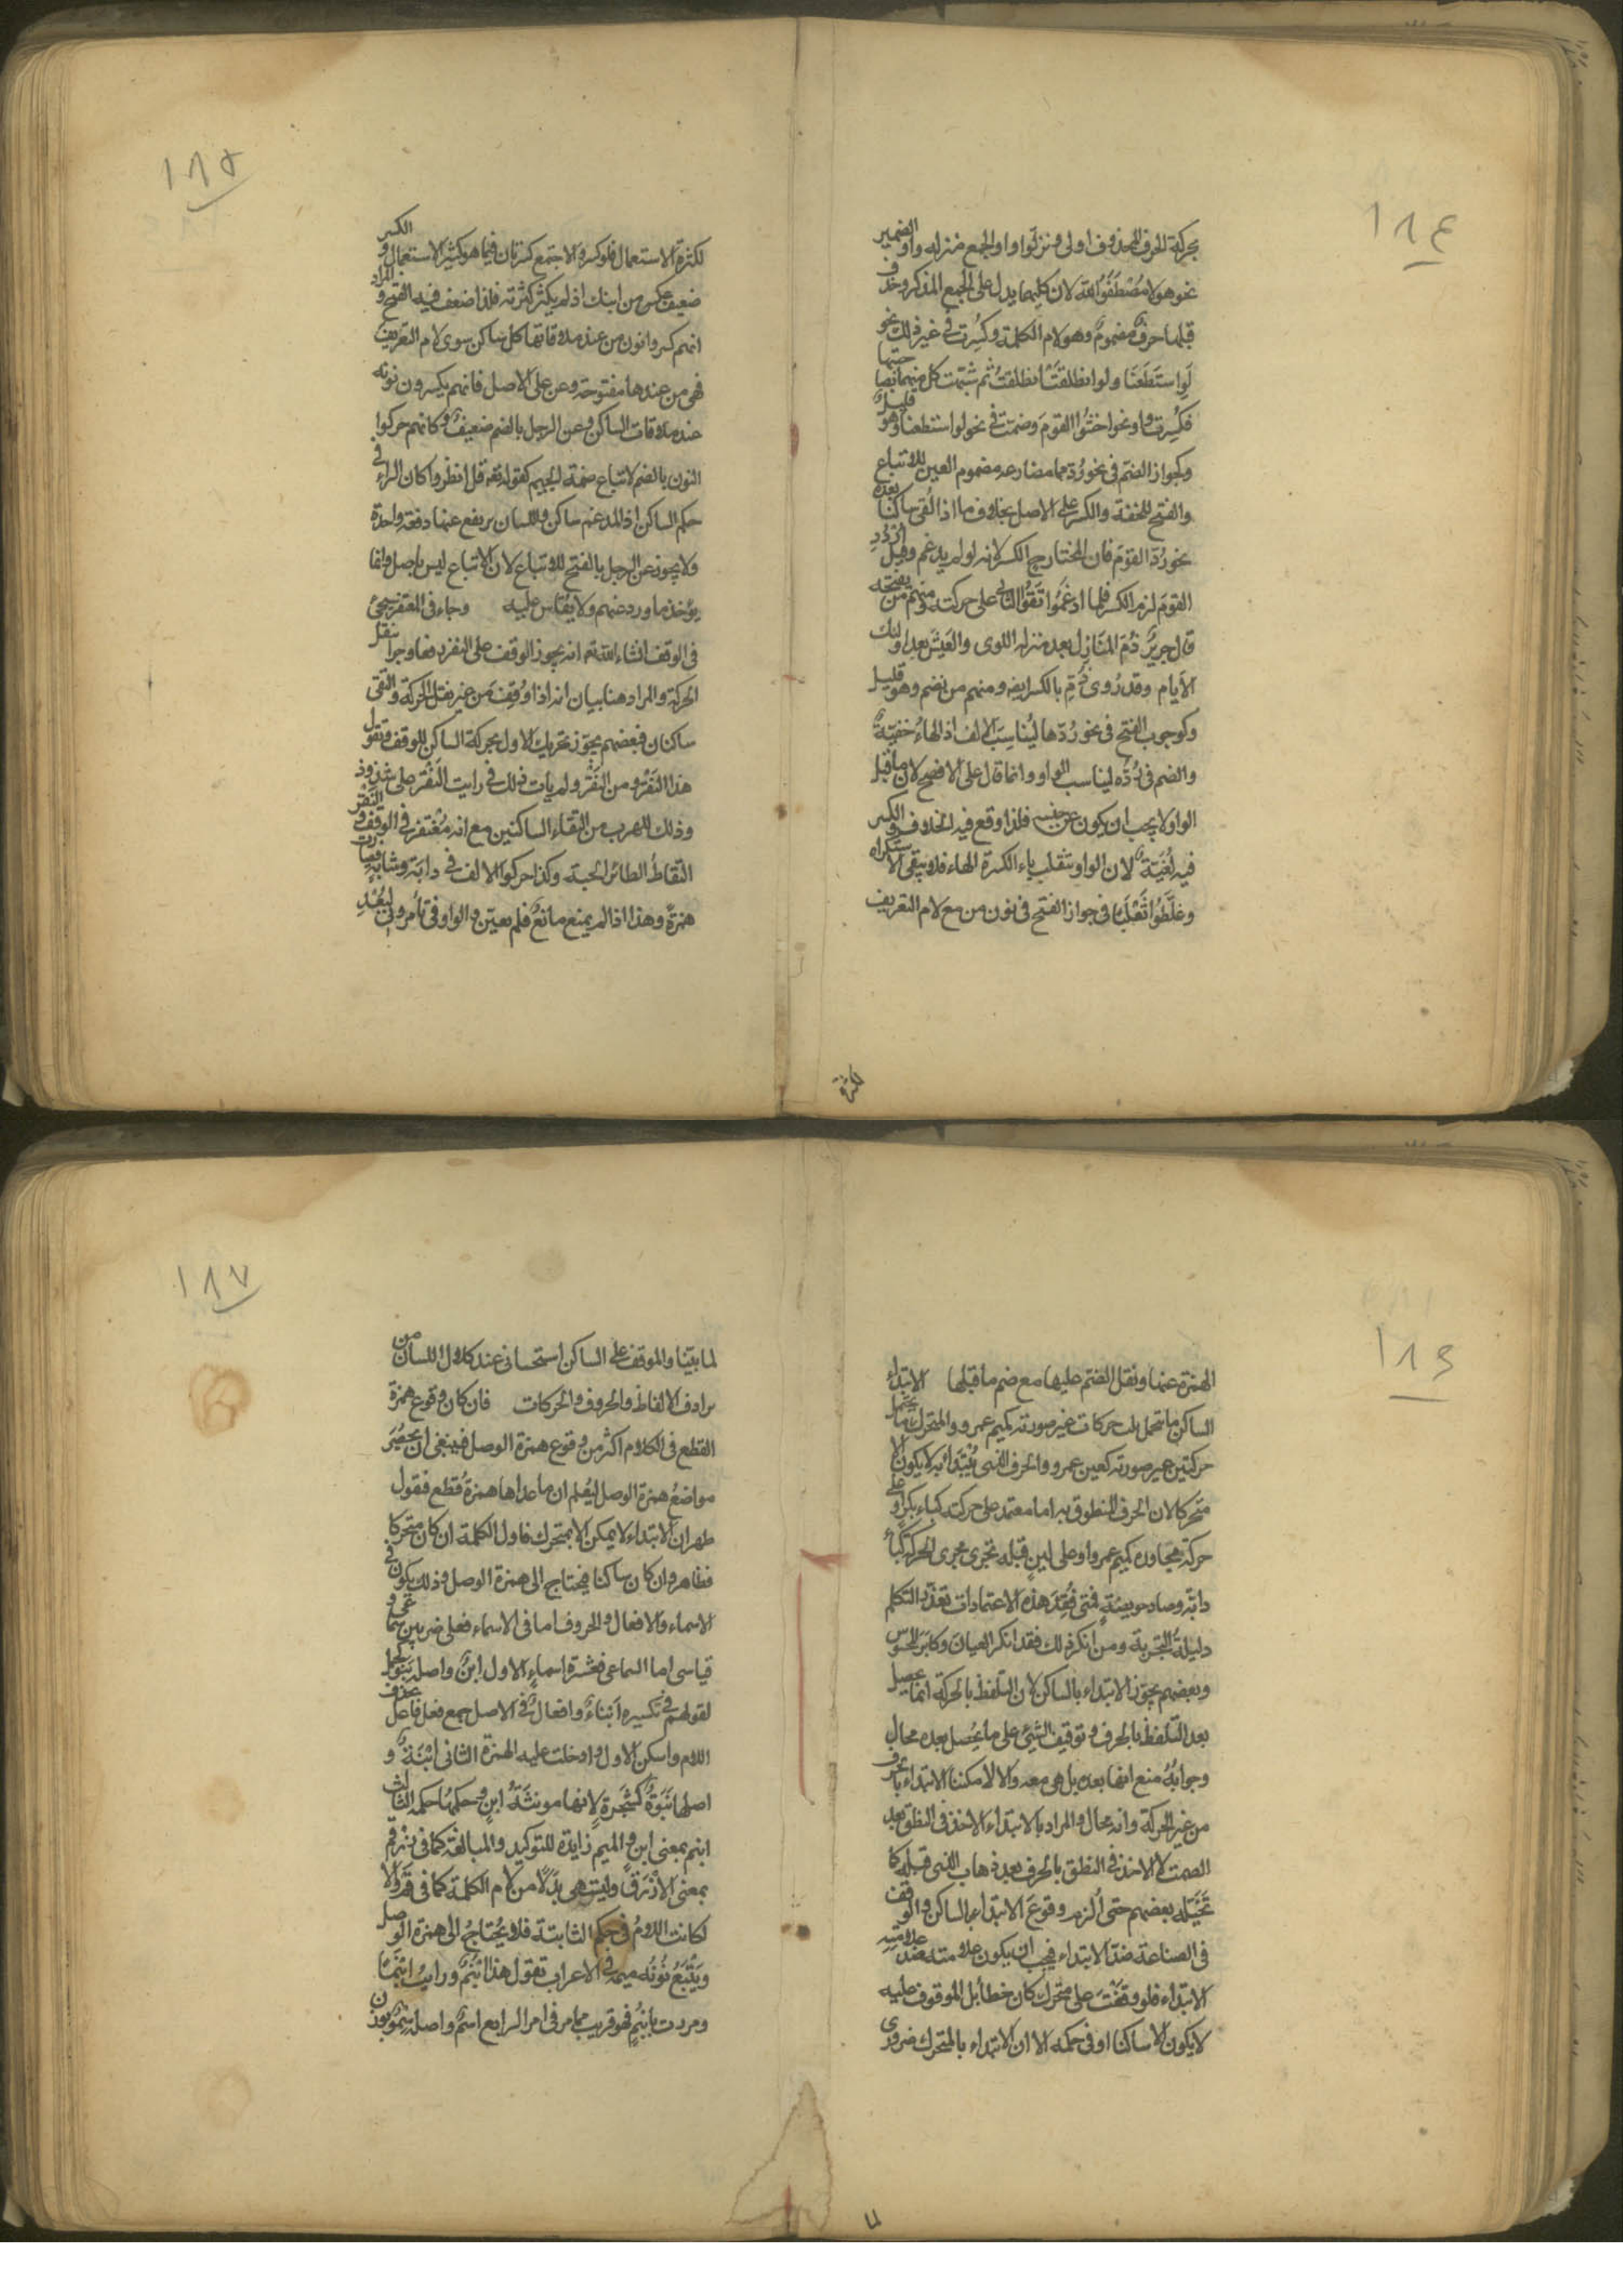 ١٨٤
بحركة الحرف المحذوف اولى ونزلوا واو الجمع منزله واو الضمير
نحو هولا مصطفوا الله لان كليهما يدل على الجمع المذكر وحذف
قبلها حرف مضموم وهو لام الكلمة وكسرت في غير ذلك نحو
لو استطعنا ولو انطلقت انطلقت ثم شبهت كل منهما بصاحبتها
فكسرت واو نحو اخشوا القوم وضمت في نحو لو استطعنا وهو قليل
وكجواز الضم في نحو رد مما مضارعه مضموم العين للاتباع
والفتح للخفة والكسر على الاصل بخلاف ما اذا لقى ساكنا بعده
نحو رد القوم فان المختار ح الكسر لانه لو لم يدغم وقيل اردد
القوم لزم الكسر فلما ادغموا تقوا الثاني على حركته ومنهم من يفتحه
قال جرير ذم المنازل بعد منزله اللوى والعيش بعد اولئك
الايام وقد روى ذم بالكسر ايضه ومنهم من يضم وهو قليل
وكوجوب الفتح في نحو ردها ليناسب الالف اذ الهاء خفية
والضم في رده ليناسب الواو وانما قال على الافصح لان ما قبل
الواو لا يجب ان يكون من جنسه فلذا وقع فيه الخلاف والكسر
فيه لغية لان الواو تنقلب ياء الكسرة الهاء فلا يبقى الاستكراه
وغلطوا ثعلبا في جواز الفتح في نون من مع لام التعريف
لكثرة
١٨٥
لكثرة الاستعمال فلو كسروا لاجتمع كسرتان فيما هو كثير الاستعمال والكسر
ضعيف عكس من ابنك اذ لم يكثر كثرته فلذا ضعف فيه الفتح والمراد
انهم كسروا نون من عند ملاقاتها كل ساكن سوى لام التعريف
فهي من عندها مفتوحة وعن على الاصل فانهم يكسرون نونه
عند ملاقات الساكن وعن الرجل بالضم ضعيف وكانهم حركوا
النون بالضم لاتباع ضمة الجيم كقوله تعه قل انظروا كان الراء في
حكم الساكن اذ المدغم ساكن واللسان يرتفع عنهما دفعة واحدة
ولا يجوز عن الرجل بالفتح للاتباع لان الاتباع ليس باصل وانما
يؤخذ ما ورد عنهم ولا يقاس عليه وجاء في المغتفر سيجيئ
في الوقف انشاء الله تع انه يجوز الوقف على النقر رفعا وجرا بنقل
الحركة والمراد هنا بيان انه اذا وقف من غير نقل الحركة والتقى
ساكنان فبعضهم يجوز تحريك الاول بحركة الساكن للوقف وتقول
هذا النقر ومن النقر ولم يات ذلك في رايت النقر على شذوذ
وذلك للهرب من التقاء الساكنين مع انه مغتفر في الوقف والنقر
التقاط الطائر الحبة وكذا حركوا الالف في دابة وشابة فصارت
همزة وهذا اذا لم يمنع مانع فلم يعين والواو في تأمروني لبعد
١٨٦
الهمزة عنها ونقل الضم عليها مع ضم ما قبلها الابتداء
الساكن ما تحمل ثلث حركات غير صورته كميم عمرو والمتحرك ما تحمل
حركتين غير صورته كعين عمرو والحرف الذى يبتدا به لا يكون الا
متحركا لان الحرف المنطوق به اما معتمد على حركته كباء بكر او على
حركة مجاوره كميم عمرو او على لين قبله تجرى مجرى الحركة كباء
دابة وصاد خويصة فمتى فقد هذه الاعتمادات تعذر التكلم
دليلة التجربة ومن انكر ذلك فقد انكر العيان وكابر المحسوس
وبعضهم يجوز الابتداء بالساكن لان التلفظ بالحركة انما يحصل
بعد التلفظ بالحرف وتوقيف الشئ على ما يحصل بعده محال
وجوابه منع انها بعده بل هي معه والا لامكننا الابتداء بالحرف
من غير الحركة وانه محال والمراد بالابتداء الاخذ في النطق بعد
الصمت لا الاخذ في النطق بالحرف بعد ذهاب الذى قبله كما
تخيله بعضهم حتى الزم وقوع الابتداء الساكن والوقف
في الصناعة ضد الابتداء فيجب ان يكون علامته ضد علامته
الابتداء فلو وقفت على متحرك كان خطأ بل الموقوف عليه
لا يكون الا ساكنا او في حكمه الا ان الابتداء بالمتحرك ضرورى
١٨٧
لما بينا والوقف على الساكن استحسانى عند كلال اللسان من
ترادف الالفاظ والحروف والحركات فان كان وقوع همزة
القطع في الكلام اكثر من وقوع همزة الوصل فينبغى ان يحصر
مواضع همزة الوصل ليعلم ان ما عداها همزة قطع فقول
ظهر ان الابتداء لا يمكن الا بمتحرك فاول الكلمة ان كان متحركا
فظاهر وان كان ساكنا فيحتاج الى همزة الوصل وذلك يكون في
الاسماء والافعال والحروف اما في الاسماء فعلى ضربين سماعى و
قياسى اما السماعى فعشرة اسماء الاول ابن واصله بنو كجمل
لقولهم في تكسيره ابناء وافعال في الاصل جمع فعل فاعل حذف
اللام واسكن الاول وادخلت عليه الهمزة الثانى ابنة و
اصلها بنوة كشجرة لانها مونثة ابن وحكمها حكمه الثالث
ابنم بمعنى ابن والميم زايدة للتوكيد والمبالغة كما في زرقم
بمعنى الازرق وليت هى بدلا من لام الكلمة كما في فم والا
لكانت اللام في حكم الثابتة فلا يحتاج الى همزة الوصل
ويتبع نونه ميمه في الاعراب تقول هذا ابنم ورايت ابنما
ومررت بابنم فهو قريب مما مر في امر الرابع اسم واصله سمو بوزن